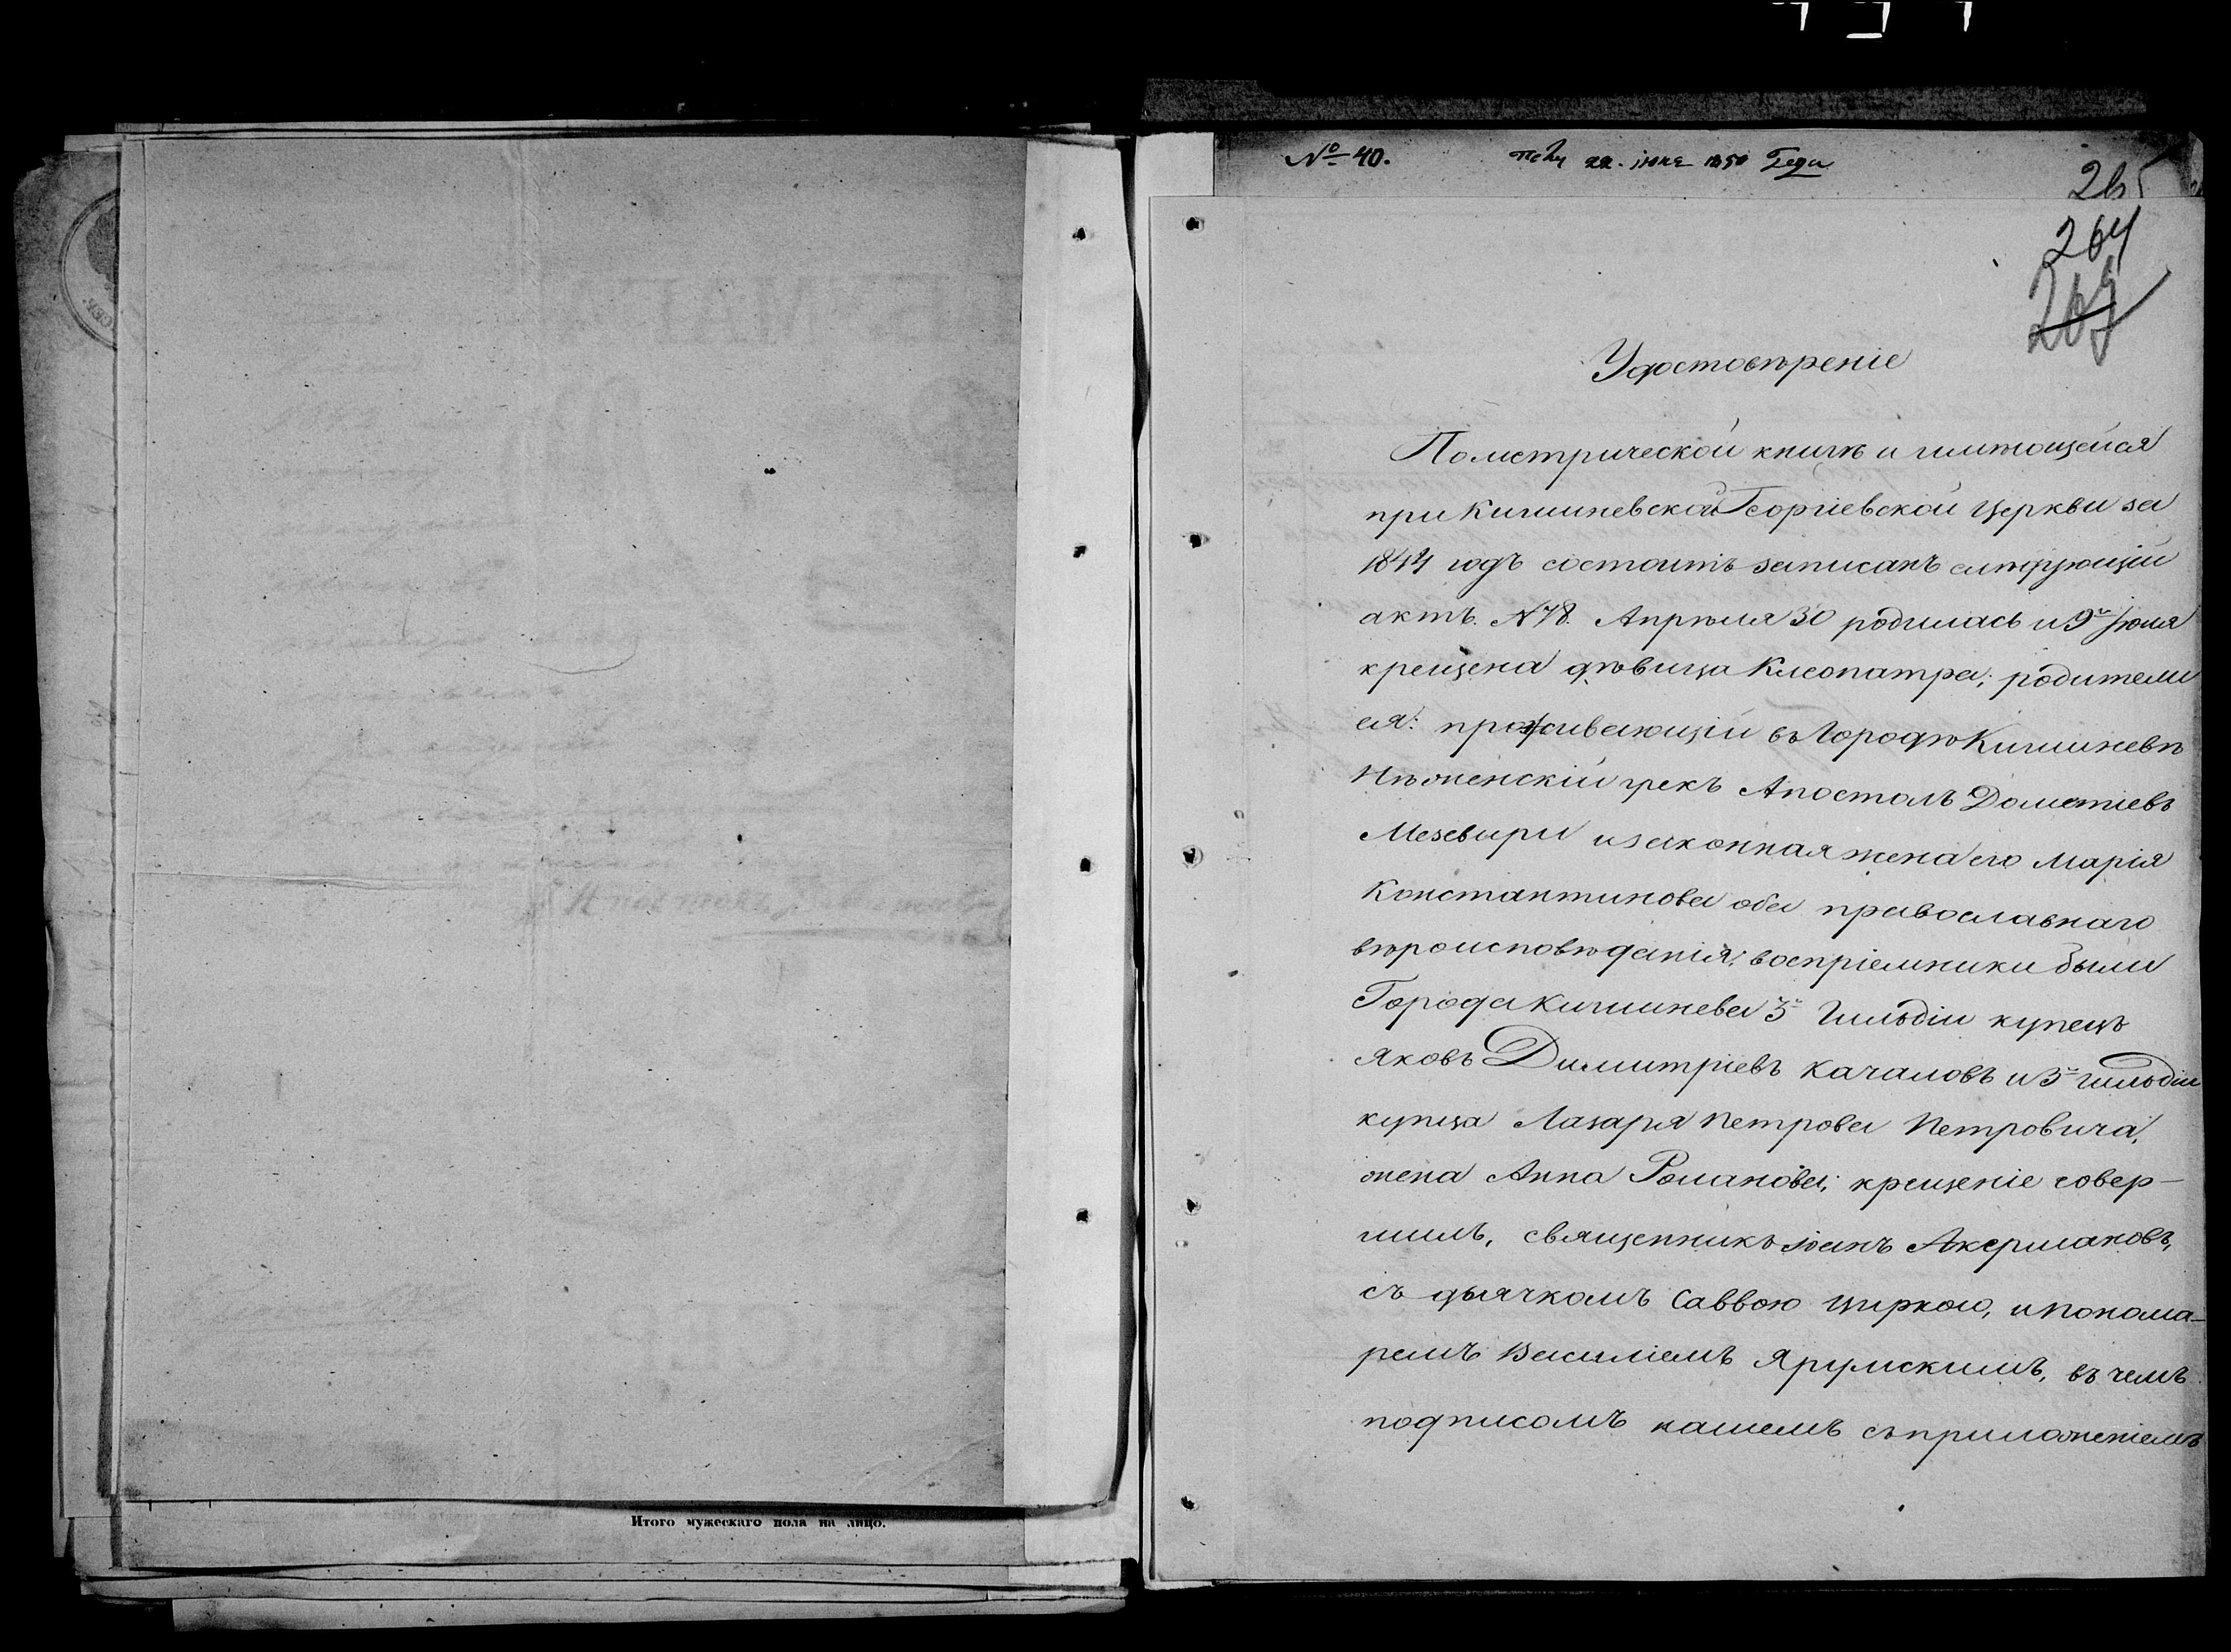 № 40. июня 1850 Года
265
264
Удостовѣреніе
Пометрической книгѣ и имѣющейся
при Кишиневской Георгіевской Церкви за
1844 годъ состоитъ записанъ слѣдующій
актъ. №78. Апрѣля 30 родилась и 9го Іюля
крещена дѣвица Клеопатра; родители
ея: проживающій въ Городѣ Кишиневѣ
Нѣженскій грекъ Апостолъ Дометіевъ
Мезевири и законная жена его Марія
Константинова оба православнаго
вѣроисповѣданія; воспріемники были
Города Кишинева 3й Гильдіи купецъ
Яковъ Димитріевъ Качаловъ и 3й гильдіи
купца Лазаря Петрова Петровича,
жена Анна Романова; крещеніе совер-
шилъ, священникъ Іоанъ Акермановъ,
съ дьячкомъ Саввою Циркою, и понома-
ремъ Василіемъ Ярумскимъ, въ чемъ
подписомъ нашемъ съ приложеніемъ
Итого мужескаго пола на лицо.